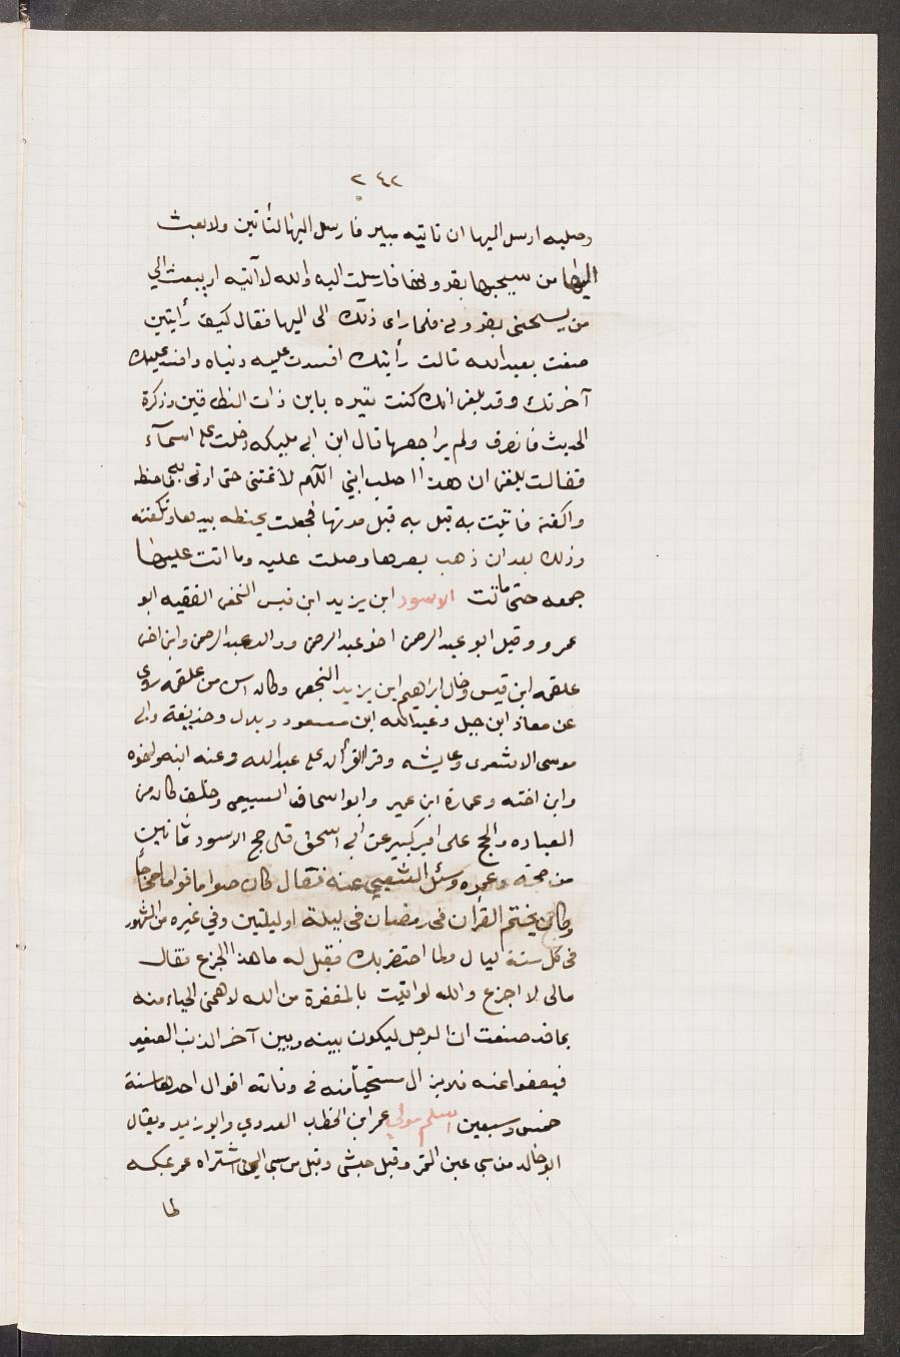 ٢٤٢
وصلبه ارسل اليها ان تاتيه فارسل اليها لتأتين ولابعث
اليها من يسحبها بقرونها فارسلت اليه والله لا آتيه او يبعث الي
من يسحبنى بقرونى فلما راى ذلك اتى اليها فقال كيف رأيتين
صنعت بعبد الله قالت رأيتك افسدت عليه دنياه وافسد عليك
آخرتك وقد بلغنى انك كنت تعيره بابن ذات النطاقين وذكرة
الحديث فانصرف ولم يراجعها قال ابن ابى مليكه دخلت على اسمآء
فقالت بلغنى ان هذا صلب ابني اللهم لا تمتنى حتى اوتى به فاحنطه
واكفنه فاتيت به قبل موتها فجعلت تحنطه بيدها وتكفنه
وذلك بعد ان ذهب بصرها وصلت عليه وما اتت عليها
جمعه حتى ماتت الاسود ابن يزيد ابن قيس النخعى الفقيه ابو
عمرو وقيل ابو عبد الرحمن اخو عبد الرحمن ووالد عبد الرحمن وابن اخى
علقمه ابن قيس وخال ابراهيم ابن يزيد النخعى وكان اسن من علقمه روى
عن معاذ ابن جبل وعبد الله ابن مسعود وبلال وحذيفة وابى
موسى الاشعرى وعايشه وقرا القرأن على عبد الله وعنه ابنه واخوه
وابن اخته وعمارة ابن عمير وابو اسحاق السبيعى وخلق كان من
العباده والحج على امر كبير عن ابى اسحق قال حج الاسود ثمانين
من حجة وعمره وسئل الشعبي عنه فقال كان صواما قواما حجاجاً
وكان يختم القرأن فى رمضان فى ليلة او ليلتين وفي غيره من الشهور
فى كل ستة ليال ولما احتضر بكى فقيل له ما هذا الجزع فقال
مالى لا اجزع والله لو اتيت بالمغفرة من الله لاهمنى الحياء منه
بما قد صنعت ان الرجل ليكون بينه وبين آخر الذنب الصغير
فيعفوا عنه فلا يزال مستحيأ منه فى وفاته اقوال احدها سنة
خمس وسبعين اسلم مولي عمر ابن الخطاب العدوي وابو زيد ويقال
ابو خالد من سبي عين التمر وقيل حبشى وقيل من سبي اليمن اشتراه عمر بمكه
لما